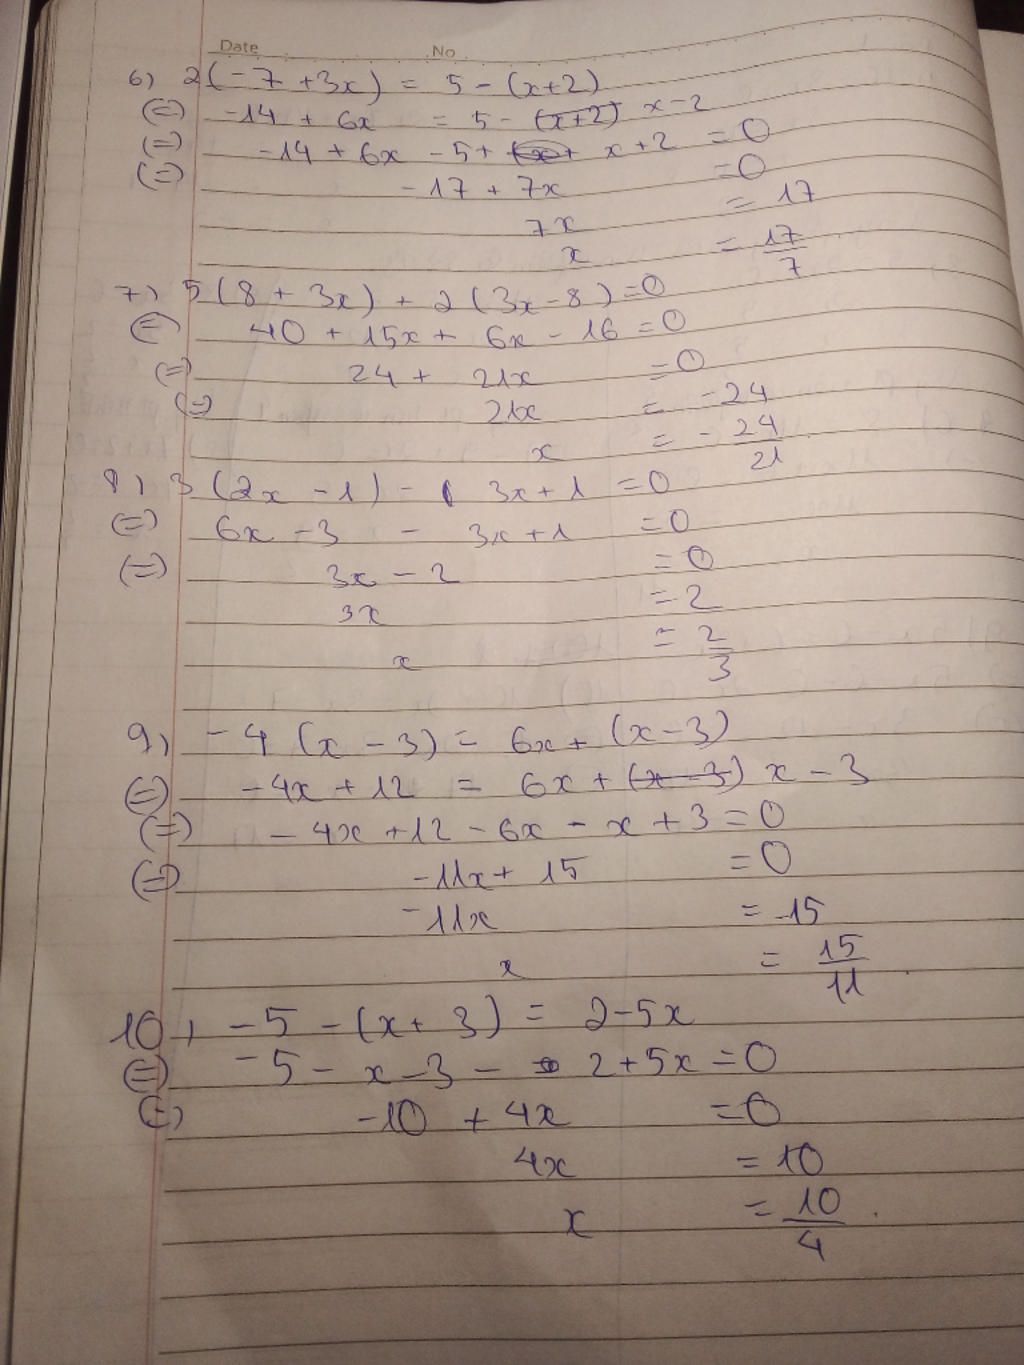 Date No
6) 2(-7 + 3x) = 5 - (x+2)
(=) -14 + 6x = 5 - (x+2) x - 2
(=) -14 + 6x - 5 + x + 2 = 0
(=) -17 + 7x = 0
7x = 17
x = 17/7
7) 5(8 + 3x) + 2(3x - 8) = 0
(=) 40 + 15x + 6x - 16 = 0
(=) 24 + 21x = 0
(=) 21x = -24
x = - 24/21
8) 3(2x - 1) - 3x + 1 = 0
(=) 6x - 3 - 3x + 1 = 0
(=) 3x - 2 = 0
3x = 2
x = 2/3
9) -4(x - 3) = 6x + (x - 3)
(=) -4x + 12 = 6x + (x - 3) x - 3
(=) -4x + 12 - 6x - x + 3 = 0
(=) -11x + 15 = 0
-11x = -15
x = 15/11
10) -5 - (x + 3) = 2 - 5x
(=) -5 - x - 3 - 2 + 5x = 0
(=) -10 + 4x = 0
4x = 10
x = 10/4